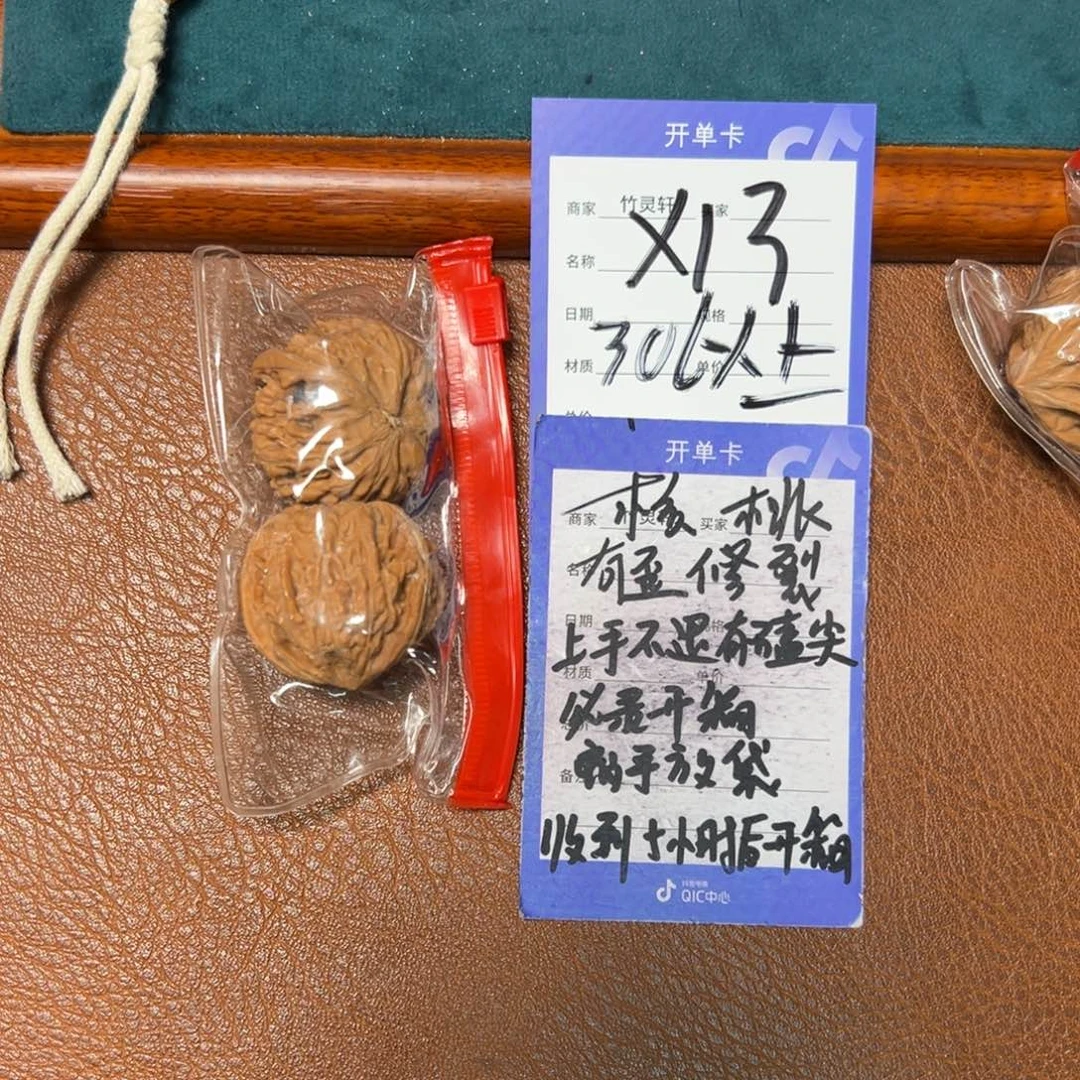 开单卡
商家 竹灵轩 家
X13
名称
日期 规格
306以上
材质 单价
总价
开单卡
商家 买家
核桃
名称
有歪修裂
日期 规格
上手不退有磕尖
材质 单价
必录开箱
备注
手放袋
收到十小时后开箱
抖音电商
QIC中心